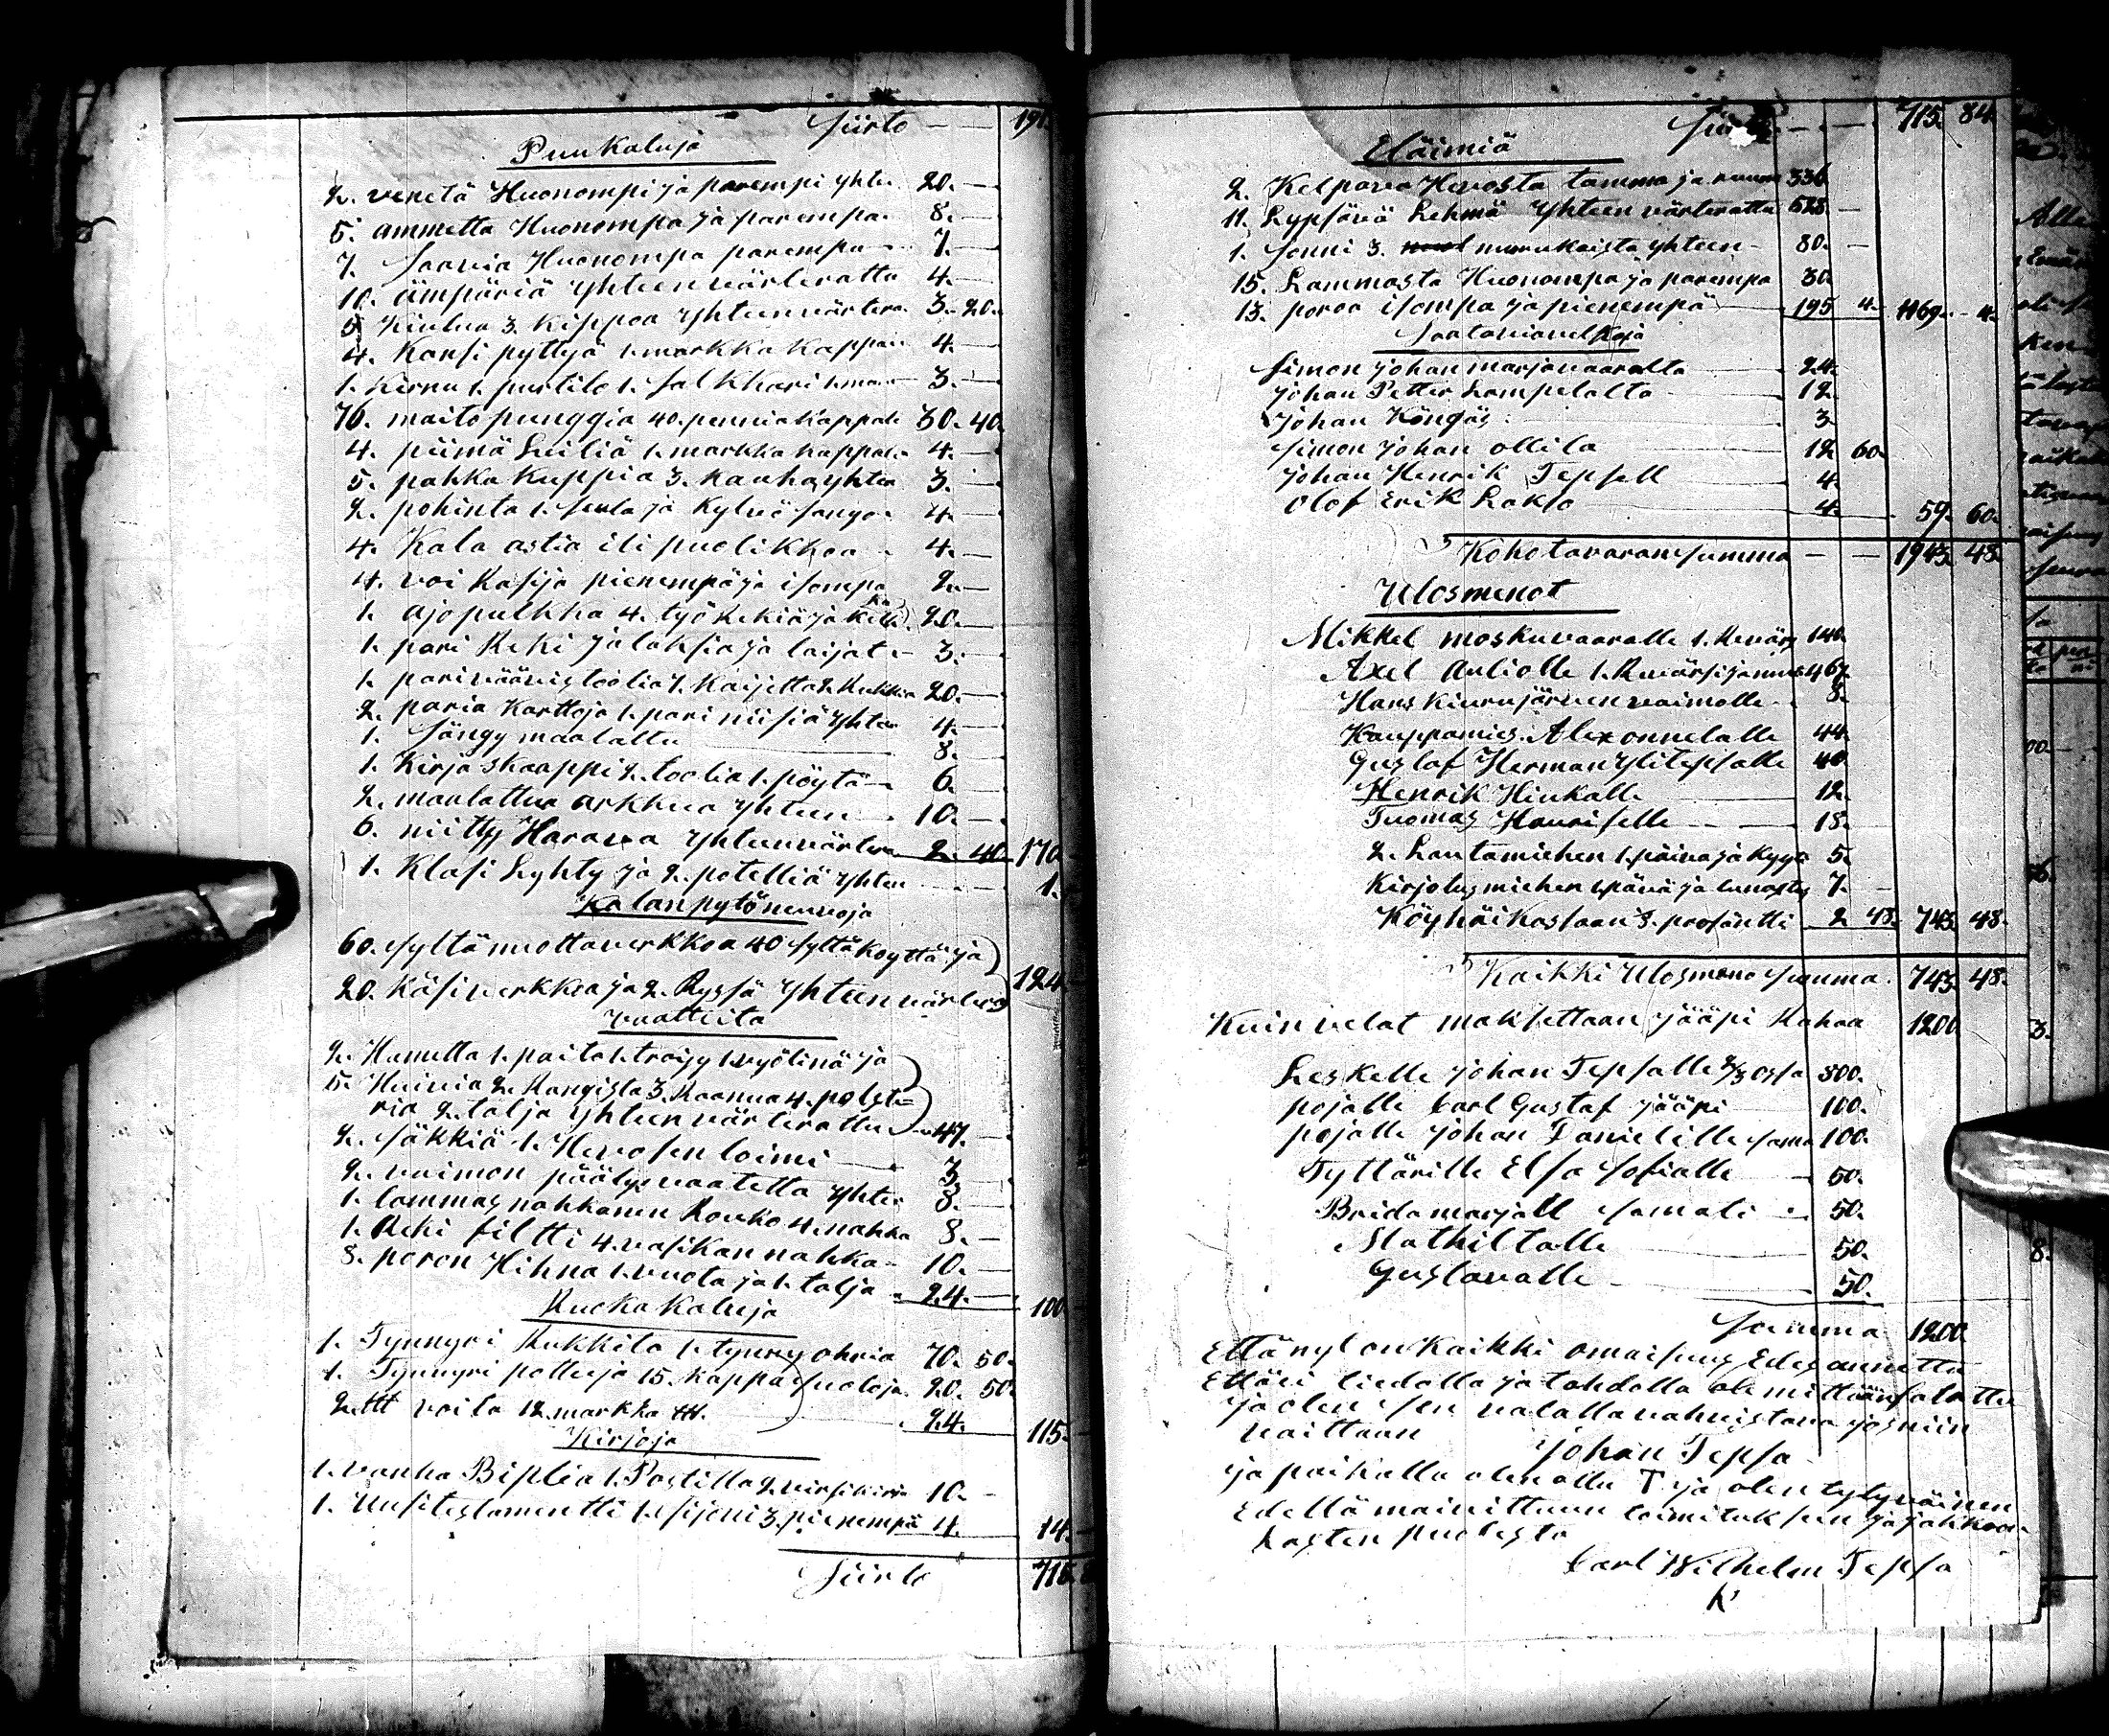 Siirto — — 191
Puukaluja
2. venetä Huonompi ja parempi yhte. 20. —
5. ammetta Huonompa ja parempa. 8. —
7. Saavia Huonompa parempa — 7. —
10. ämpäriä yhteenvärterattu 4. —
5 Kiulua 3. Kippoa yhteenvärtera. 3. 20.
4. Kansi pyttyä 1. markka Kappale 4. —
1. Kirnu 1. puntilo 1. Salkkari 3. —
76. maito punggia 40. pennia Kappale 30. 40.
4. piimä Leiliä 1. markka kappale 4. —
5. pahka Kuppia 3. Kauhaa yhten 3. —
2. pohinta 1. seula ja Kylvö sango. 4. —
4. Kala astia eli puolikkoa 4. —
4. voi Rasija pienempä ja isompa 2. —
1. ajopulkka 4. työ Rekiä ja 20. —
1. pari Reki jalaksia ja laijat — 3. —
1. pari väävistoolia 1. Kaijetta 2. Rukkia 20. —
2. paria Karttoja 1. pari niisiä yhten 4. —
1. Sängy maalattu 8. —
1. Kirja skaappi 2. toolia 1. pöytä — 6. —
2. maalattua arkkua yhteen 10. —
6. niitty Harava yhteenvärtera 2. 40. 170
1. Klasi Lyhty ja 2. potelliä yhten — — 1.
Kalanpytöneuvoja
60. syltä nuottaverkkoa 40 syltä Koyttä ja
20. Käsiverkkoa ja 2. Ryssä yhteenvärtera 124
Vaatteita
2. Hametta 1. paita 1. tröijy 1. vyölinä ja
5. Huivia 2. Kangista 3. Raanua 4. polste=
ria 2. talja yhteenvärterattu — 47. —
2. säkkiä 1. Hevosen loimi — 3 —
2. vaimon päälysvaatetta yhte 8. —
1. lammas nahkanen Rouko 4. nahka 8. —
1. Reki filtti 4. vasikan nahka — 10. —
8. poron Hihna 1. vuota ja 1. talja 24. — 100
Ruoka Kaluja
1. Tynnyri Rukkita 1. tynny ohria 70. 50.
1. Tynnyri polluja 15. Kappa suoloja 20. 50
2. ltt voita 12. markka ltt. 24. 115.
Kirjoja
1. vanha Biplia 1. Postilla 2. virsikirja 10. —
1. Uusitestamentti 1. sijoni 3. pienempä 4. 14. —
Siirto 715.
Siirto — — 715. 84
Eläimiä
2. Kelpava Hevosta tamma ja ruuna 336
11. Lypsävä Lehmä yhteen värterattu 528 —
1. Sonni 3. mullukaista yhteen — 80. —
15. Lammasta Huonompa ja parempa 30.
13. poroa isompa ja pienempä 195 4. 1169. 4.
Saataviavelkoja
Simon johan marjavaaralta 24.
johan Petter Lampelalta 12.
johan Köngäs 3.
Simon johan ollila 12 60.
johan Henrik Tepsell 4.
Olof Erik Lakso 4. 59. 60.
Koko tavaran summa — — 1943. 48.
Ulosmenot
Mikkel moskuvaaralle 1. Revärs 140.
Axel Auliolle 1. Revärsi ja muu 467.
Hans Kiurujärven vaimolle 8.
Kauppamies Alex onnelalle 44.
Gustaf Herman ylitepsalle 40
Henrik Hiukalle 12.
Tuomas Hauriselle 18.
2. Lautamiehen 1. päiva ja kyyti 5.
Kirjotusmiehen 1 päivä ja lunastus 7. —
Köyhäi Kassaan 8. prosäntti 2 48. 743. 48.
Kaikki Ulosmeno summa. 743. 48.
Kuin velat maksettaan jääpi Rahaa 1200
Leskelle johan Tepsalle 2/3 ossa 800.
pojalle Carl Gustaf jääpi 100.
pojalle johan Danielille sama 100.
Tyttärille Elsa Sofialle 50.
Brida marjall samati 50.
Mathiltalle 50.
Gustavalle 50.
Summa 1200
Että nyt on Kaikki omaisuus Edes annettu
Ettäei tiedolla ja tahdolla ole mittään salattu
ja olen sen valalla vahvistava jos niin
vaittaan johan Tepsa
ja paikalla olen ollu ja olen tytyväinen
Edellä mainittuun toimituksen ja jakkoa=
kasten puolesta
Carl Wilhelm Tepsa